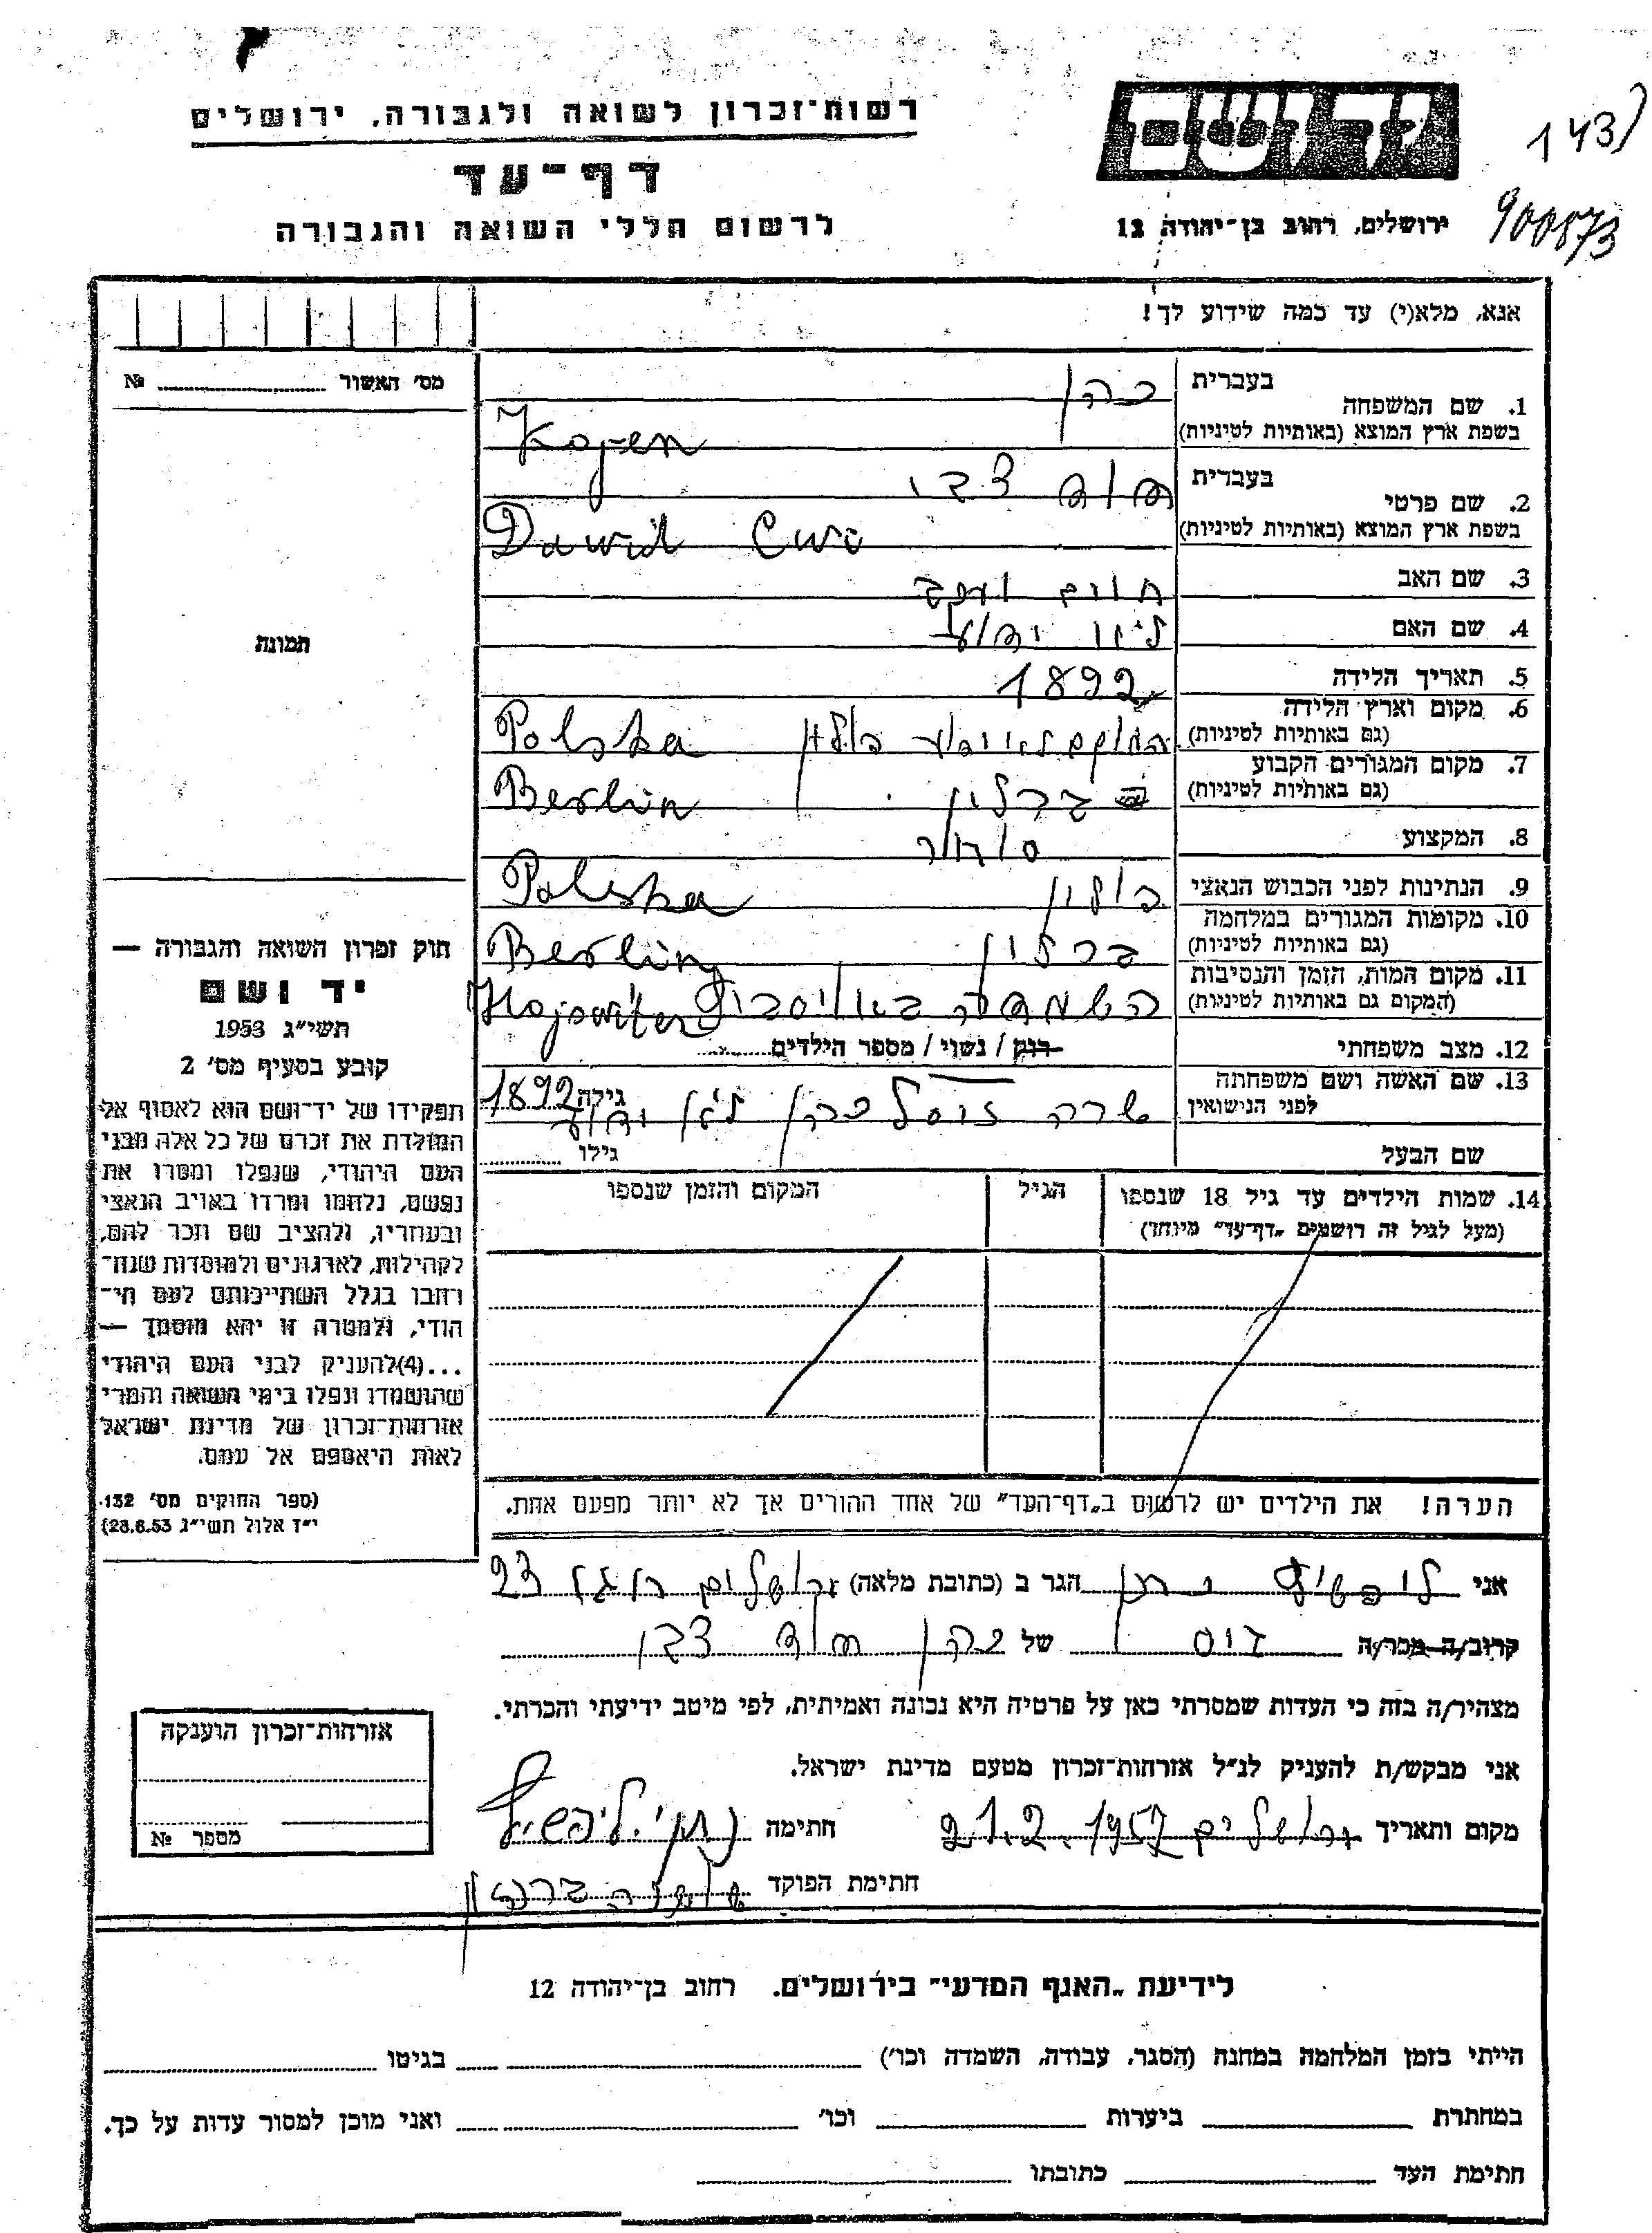 רשות־זכרון לשואה ולגבורה, ירושלים
דף־עד
לרשום חללי השואה והגבורה
ידושם
ירושלים, רחוב בן־יהודה 12
143
900873
אנא, מלא(י) עד כמה שידוע לך!
מס׳ האשור № 
1. שם המשפחה
בעברית כהן
בשפת ארץ המוצא (באותיות לטיניות) Kojen
2. שם פרטי
בעברית דוד צבי
בשפת ארץ המוצא (באותיות לטיניות) Dawid Cwi
3. שם האב חיים יעקב
4. שם האם לא ידוע
5. תאריך הלידה 1892
6. מקום וארץ הלידה
(גם באותיות לטיניות) המקום לא ידוע פולין Polska
7. מקום המגורים הקבוע
(גם באותיות לטיניות) ברלין Berlin
8. המקצוע סוחר
9. הנתינות לפני הכבוש הנאצי פולין Polska
10. מקומות המגורים במלחמה
(גם באותיות לטיניות) ברלין Berlin
11. מקום המות, הזמן והנסיבות
(המקום גם באותיות לטיניות) השמדה
12. מצב משפחתי רוק / נשוי / מספר הילדים
13. שם האשה ושם משפחתה
לפני הנישואין שרה כהן לא ידוע גילה 1892
שם הבעל גילו
14. שמות הילדים עד גיל 18 שנספו הגיל המקום והזמן שנספו
(מעל לגיל זה רושמים „דף־עד” מיוחד)
הערה! את הילדים יש לרשום ב„דף־העד” של אחד ההורים אך לא יותר מפעם אחת.
תמונה
חוק זכרון השואה והגבורה —
יד ושם
תשי״ג 1953
קובע בסעיף מס׳ 2
תפקידו של יד־ושם הוא לאסוף אל
המולדת את זכרם של כל אלה מבני
העם היהודי, שנפלו ומסרו את
נפשם, נלחמו ומרדו באויב הנאצי
ובעוזריו, ולהציב שם וזכר להם,
לקהילות, לארגונים ולמוסדות שנח־
רבו בגלל השתייכותם לעם הי־
הודי, ולמטרה זו יהא מוסמך —
...(4)להעניק לבני העם היהודי
שהושמדו ונפלו בימי השואה והמרי
אזרחות־זכרון של מדינת ישראל
לאות היאספם אל עמם.
(ספר החוקים מס׳ 132.
י״ד אלול תשי״ג 28.8.53)
אני הגר ב (כתובת מלאה) ירושלים 23
קרוב/ה מכר/ה דוס של כהן דוד צבי
מצהיר/ה בזה כי העדות שמסרתי כאן על פרטיה היא נכונה ואמיתית, לפי מיטב ידיעתי והכרתי.
אני מבקש/ת להעניק לנ״ל אזרחות־זכרון מטעם מדינת ישראל.
מקום ותאריך ירושלים 21.2.1957 חתימה
חתימת הפוקד
אזרחות־זכרון הוענקה
מספר №
לידיעת „האגף המדעי” בירושלים. רחוב בן־יהודה 12
הייתי בזמן המלחמה במחנה (הסגר, עבודה, השמדה וכו׳) בגיטו
במחתרת ביערות וכו׳ ואני מוכן למסור עדות על כך.
חתימת העד כתובתו